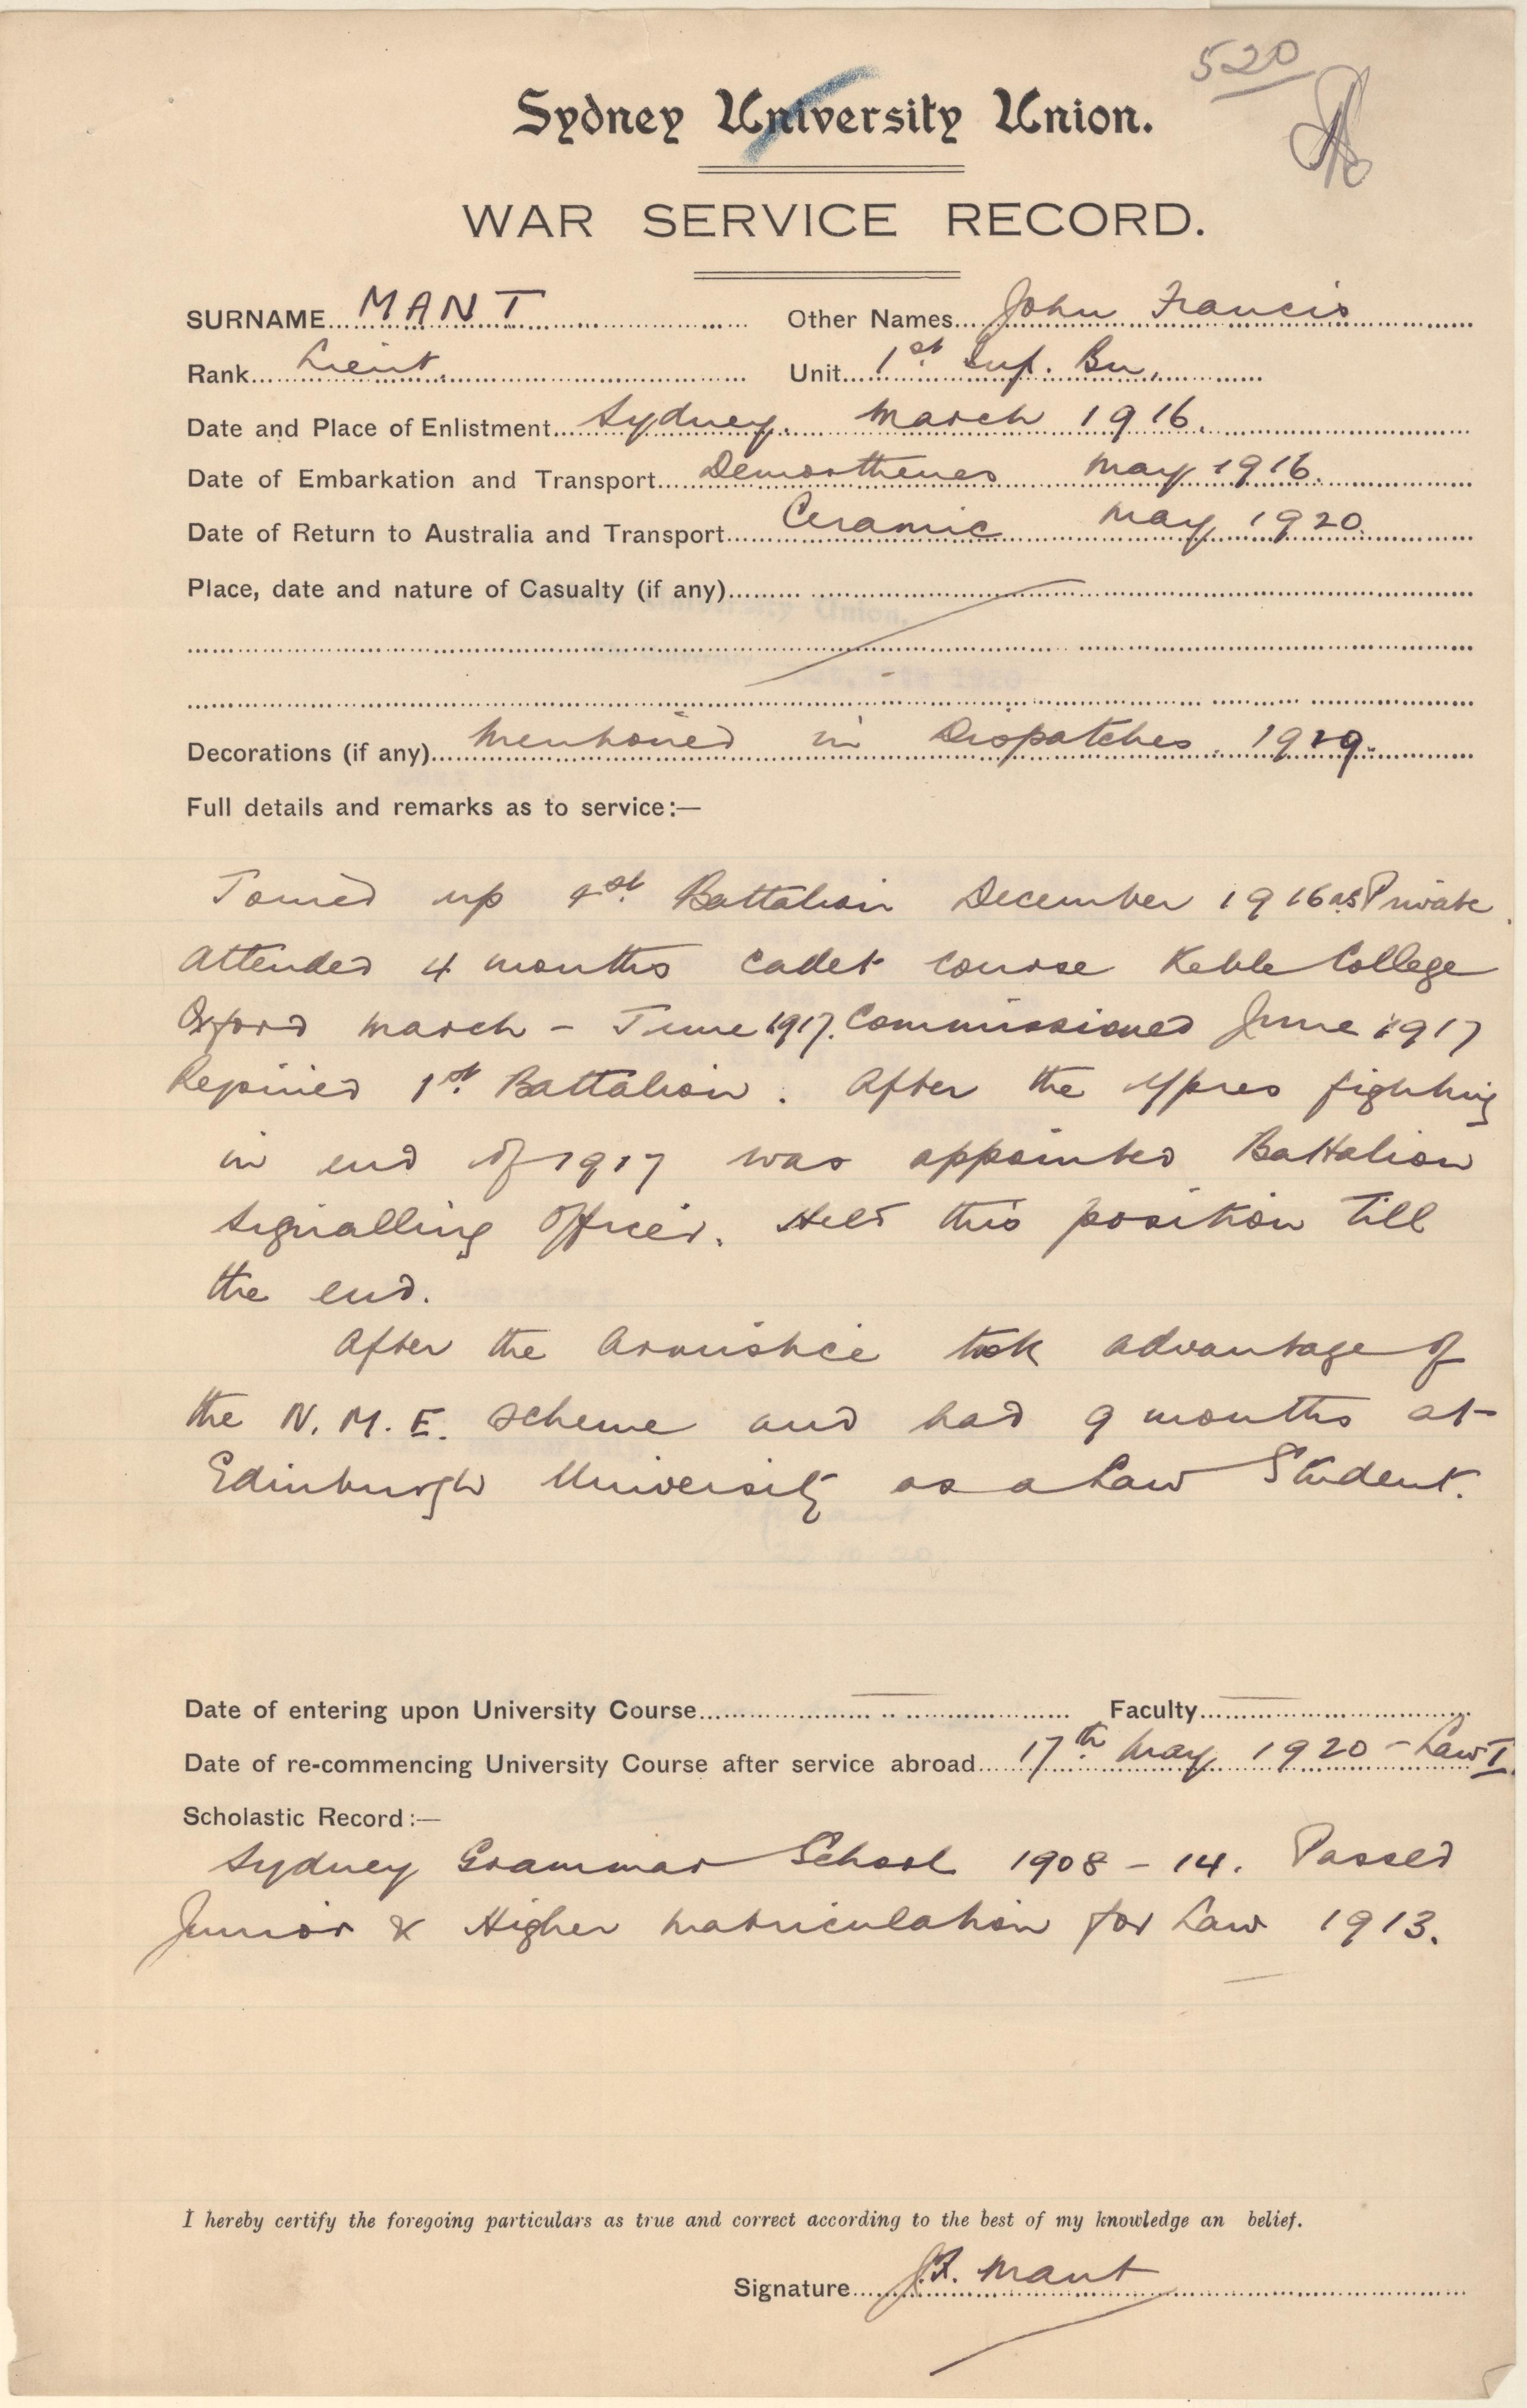 520
Sydney University Union.
WAR SERVICE RECORD.
SURNAME MANT Other Names John Francis
Rank Lieut. Unit 1st Inf. Bn.
Date and Place of Enlistment Sydney. March 1916.
Date of Embarkation and Transport Demosthenes May 1916.
Date of Return to Australia and Transport Ceramic May 1920.
Place, date and nature of Casualty (if any)
Decorations (if any) Mentioned in Dispatches. 1919.
Full details and remarks as to service:—
Joined up 1st Battalion December 1916 as Private.
Attended 4 months cadet course Keble College
Oxford March - June 1917. Commissioned June 1917
Rejoined 1st Battalion. After the Ypres fighting
in end of 1917 was appointed Battalion
Signalling Officer. Held this position till
the end.
After the Armistice took advantage of
the N. M. E. scheme and had 9 months at
Edinburgh University as a Law Student.
Date of entering upon University Course — Faculty —
Date of re-commencing University Course after service abroad 17th May 1920 - Law I.
Scholastic Record:—
Sydney Grammar School 1908 - 14. Passed
Junior & Higher Matriculation for Law 1913.
I hereby certify the foregoing particulars as true and correct according to the best of my knowledge an belief.
Signature J.F. Mant